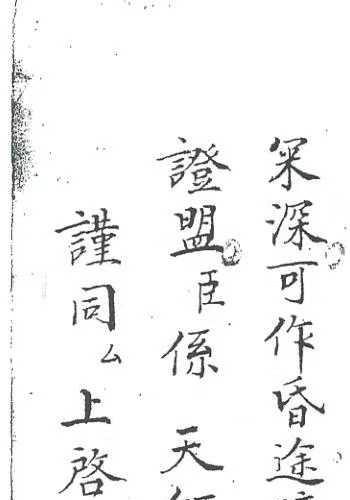 冞深可作昏途
證盟臣係天
謹同厶上啓